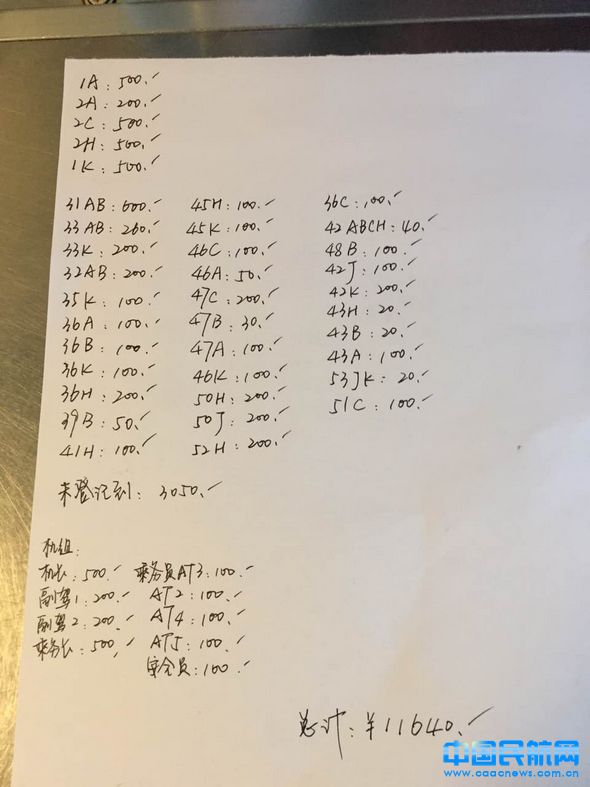 1A:500.-
2A:200.-
2C:500.-
2H:500.-
1K:500.-
31AB:600.-
33AB:260.-
33K:200.-
32AB:200.-
35K:100.-
36A:100.-
36B:100.-
36K:100.-
36H:200.-
39B:50.-
41H:100.-
45H:100.-
45K:100.-
46C:100.-
46A:50.-
47C:200.-
47B:30.-
47A:100.-
46K:100.-
50H:200.-
50J:200.-
52H:200.-
36C:100.-
42ABCH:40.-
48B:100.-
42J:100.-
42K:200.-
43H:20.-
43B:20.-
43A:100.-
53JK:20.-
51C:100.-
未登记到:3050.-
机组:
机长:500.-
副驾1:200.-
副驾2:200.-
乘务长:500.-
乘务员AT3:100.-
AT2:100.-
AT4:100.-
AT5:100.-
安全员:100.-
总计:¥11640.-
中国民航网
www.caacnews.com.cn